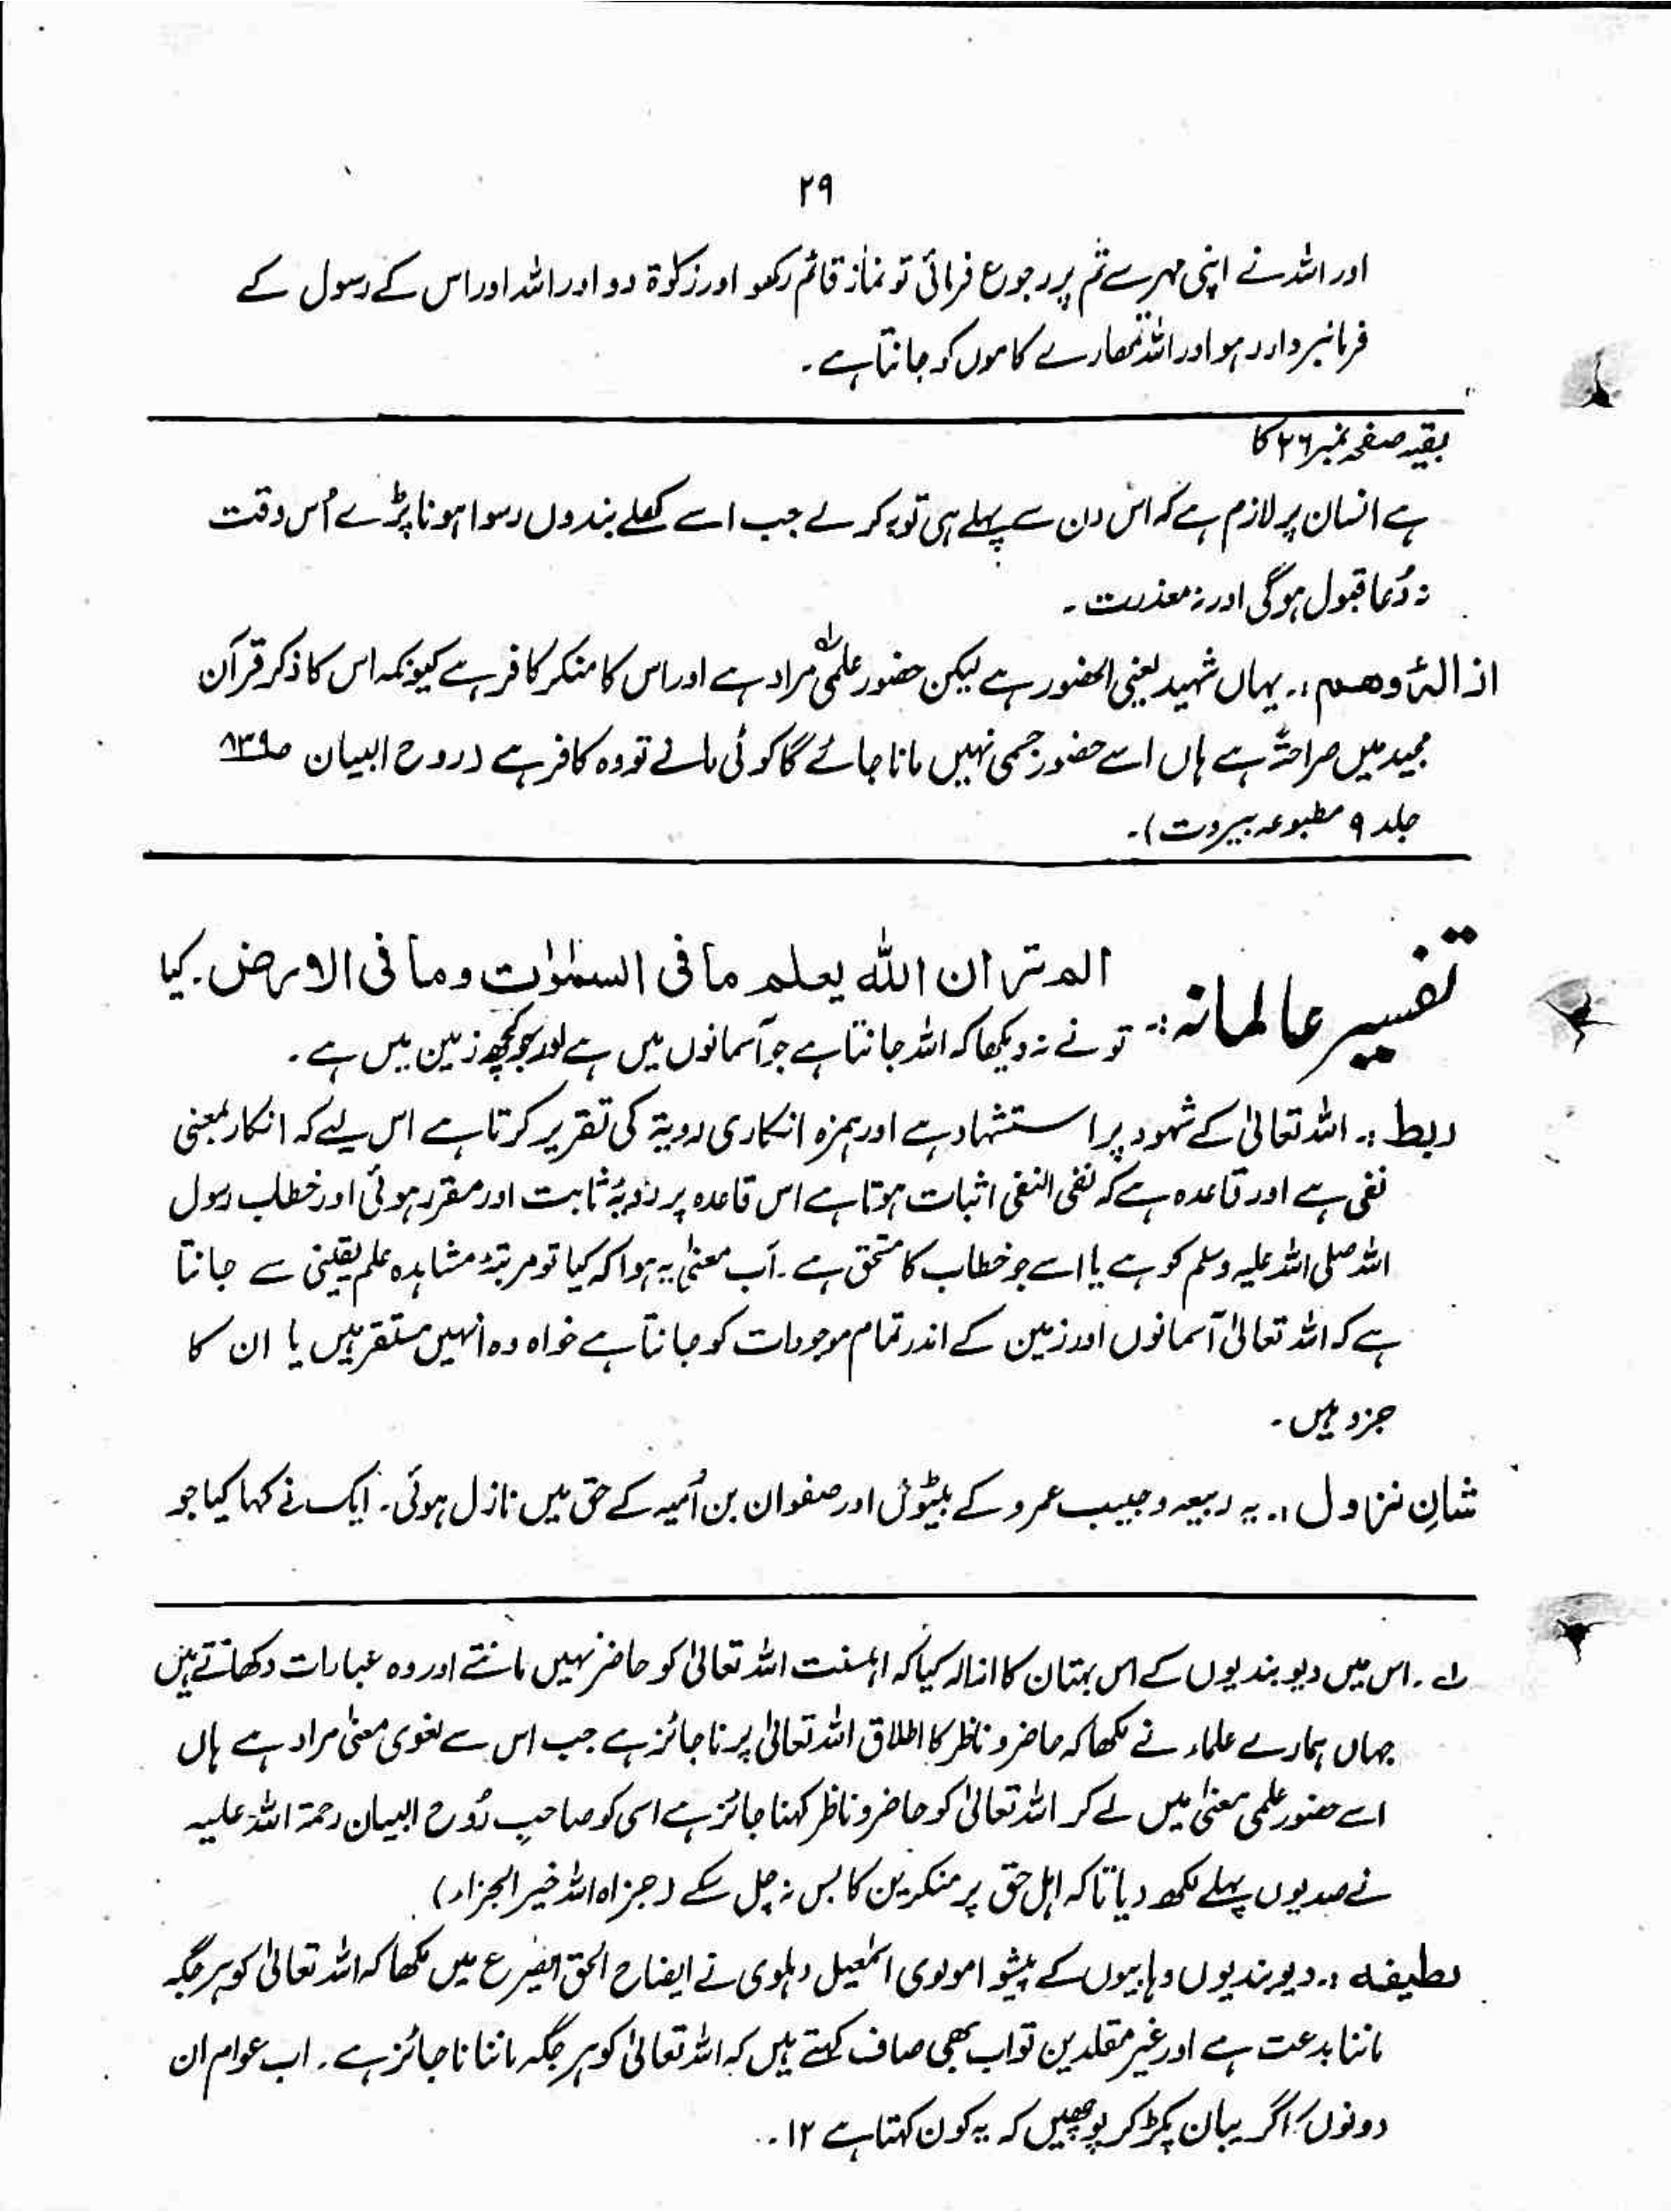 ۲۹
اور اللہ نے اپنی مہر سے تم پر رجوع فرمائی تو نماز قائم رکھو اور زکوٰۃ دو اور اللہ اور اس کے رسول کے
فرمانبردار رہو اور اللہ تمھارے کاموں کو جانتا ہے ۔
بقیہ صفحہ نمبر ۲۶ کا
ہے انسان پر لازم ہے کہ اس دن سے پہلے ہی توبہ کر لے جب اسے کھلے بندوں رسوا ہونا پڑے اُس وقت
نہ دُعا قبول ہوگی اور نہ معذرت ۔
ازالۂ وھم :۔ یہاں شہید بمعنی الحضور ہے لیکن حضور علمی مراد ہے اور اس کا منکر کافر ہے کیونکہ اس کا ذکر قرآن
مجید میں صراحۃً ہے ہاں اسے حضور جسمی نہیں مانا جائے گا کوئی مانے تو وہ کافر ہے (روح البیان ص۸۳۹
جلد ۹ مطبوعہ بیروت)۔
تفسیر عالمانہ :۔ الم تر ان اللہ یعلم ما فی السمٰوٰت وما فی الارض ۔ کیا
تو نے نہ دیکھا کہ اللہ جانتا ہے جو آسمانوں میں ہے اور جو کچھ زمین میں ہے ۔
ربط :۔ اللہ تعالیٰ کے شہود پر استشہاد ہے اور ہمزہ انکاری رویۃ کی تقریر کرتا ہے اس لیے کہ انکار بمعنی
نفی ہے اور قاعدہ ہے کہ نفی النفی اثبات ہوتا ہے اس قاعدہ پر رؤیۃ ثابت اور مقرر ہوئی اور خطاب رسول
اللہ صلی اللہ علیہ وسلم کو ہے یا اسے جو خطاب کا مستحق ہے ۔ اب معنیٰ یہ ہوا کہ کیا تو مرتبۂ مشاہدہ علم یقینی سے جانتا
ہے کہ اللہ تعالیٰ آسمانوں اور زمین کے اندر تمام موجودات کو جانتا ہے خواہ وہ انہیں مستقر ہیں یا ان کا
جزو ہیں ۔
شانِ نزول :۔ یہ ربیعہ و حبیب عمرو کے بیٹوں اور صفوان بن اُمیہ کے حق میں نازل ہوئی ۔ ایک نے کہا کیا جو
لے ۔ اس میں دیوبندیوں کے اس بہتان کا ازالہ کیا کہ اہلسنت اللہ تعالیٰ کو حاضر نہیں مانتے اور وہ عبارات دکھاتے ہیں
جہاں ہمارے علماء نے لکھا کہ حاضر و ناظر کا اطلاق اللہ تعالیٰ پر ناجائز ہے جب اس سے لغوی معنیٰ مراد ہے ہاں
اسے حضور علمی معنیٰ میں لے کر اللہ تعالیٰ کو حاضر و ناظر کہنا جائز ہے اسی کو صاحبِ رُوح البیان رحمۃ اللہ علیہ
نے صدیوں پہلے لکھ دیا تاکہ اہل حق پر منکرین کا بس نہ چل سکے (جزاہ اللہ خیر الجزاء)
لطیفہ :۔ دیوبندیوں وہابیوں کے پیشوا مولوی اسمٰعیل دہلوی نے ایضاح الحق الصریح میں لکھا کہ اللہ تعالیٰ کو ہر جگہ
ماننا بدعت ہے اور غیر مقلدین تو اب بھی صاف کہتے ہیں کہ اللہ تعالیٰ کو ہر جگہ ماننا ناجائز ہے ۔ اب عوام ان
دونوں کا گریبان پکڑ کر پوچھیں کہ یہ کون کہتا ہے ۱۲ ۔